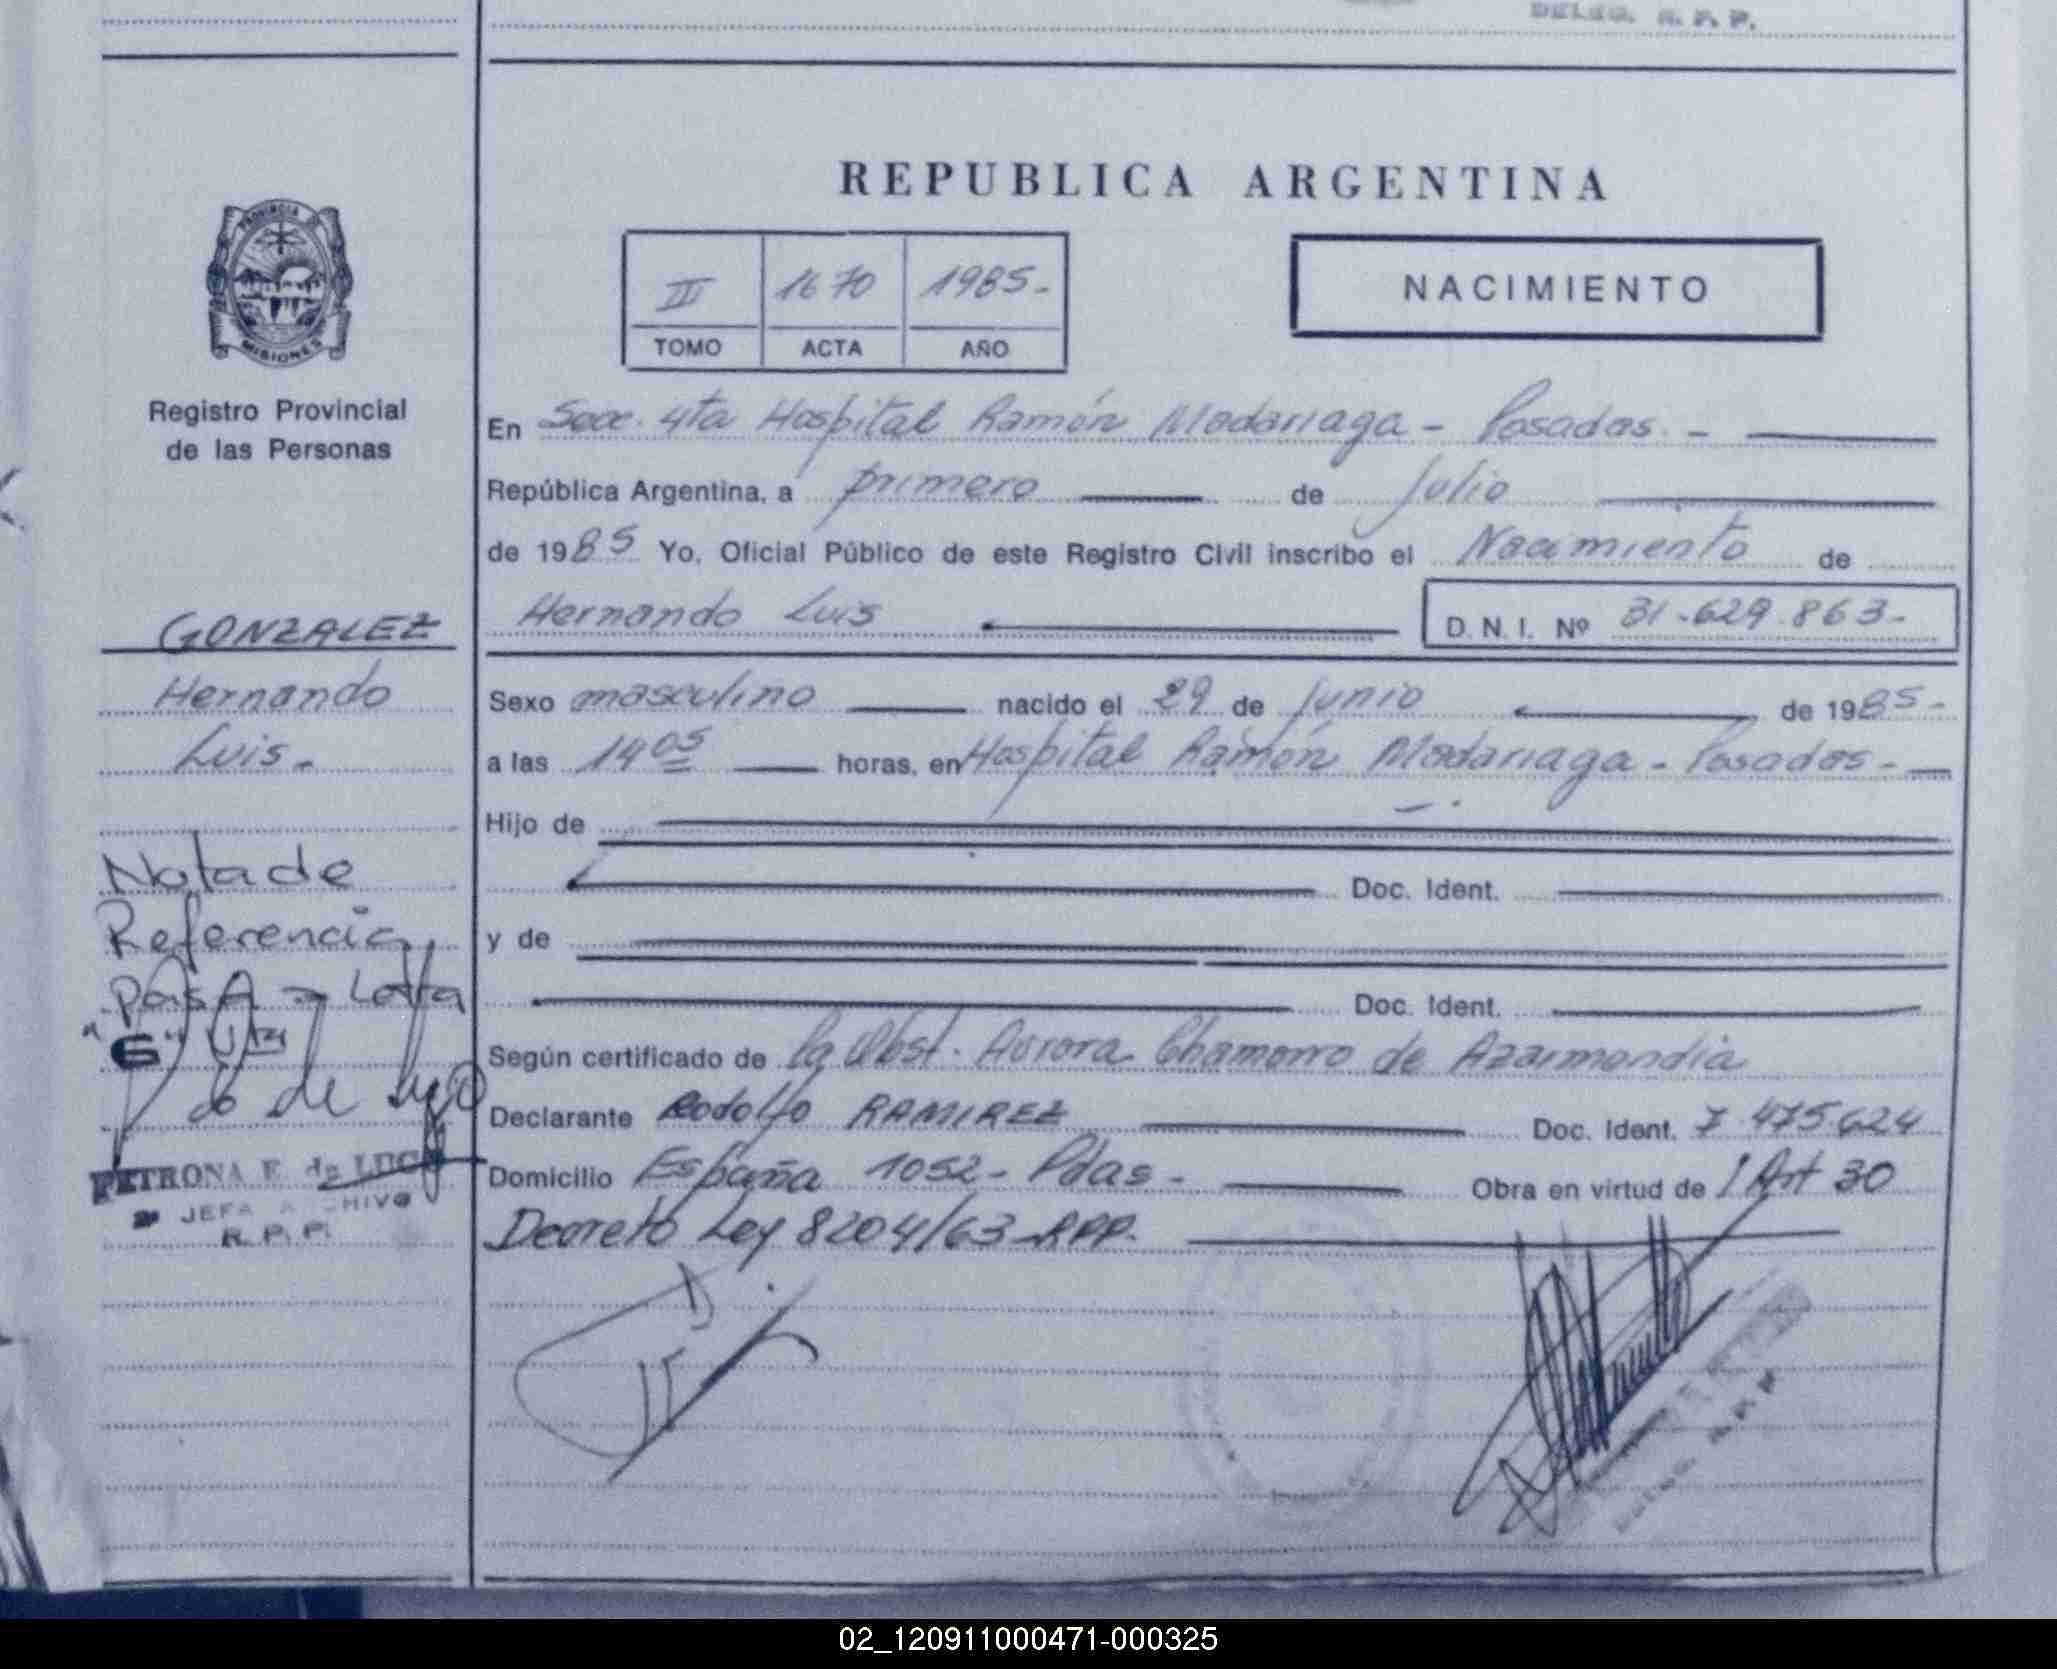 DELEG. R. P. P.
REPUBLICA ARGENTINA
PROVINCIA DE
MISIONES
III 1670 1985.-
TOMO ACTA AÑO
NACIMIENTO
Registro Provincial
de las Personas
GONZALEZ
Hernando
Luis.-
Nota de
Referencia
Pasa a Letra
"G"
PETRONA E. de LUGO
JEFA ARCHIVO
R. P. P.
En Secc. 4ta Hospital Ramón Madariaga - Posadas. -
República Argentina, a primero de Julio
de 1985 Yo, Oficial Público de este Registro Civil inscribo el Nacimiento de
Hernando Luis D. N. I. Nº 31.629.863.-
Sexo masculino nacido el 29 de Junio de 1985.-
a las 14 05 horas, en Hospital Ramón Madariaga - Posadas -
Hijo de
Doc. Ident.
y de
Doc. Ident.
Según certificado de la Obst. Aurora Chamorro de Azarmendia
Declarante Rodolfo RAMIREZ Doc. Ident. 7.475.624
Domicilio España 1052 - Pdas - Obra en virtud de / Art 30
Decreto Ley 8204/63 RPP.
02_120911000471-000325